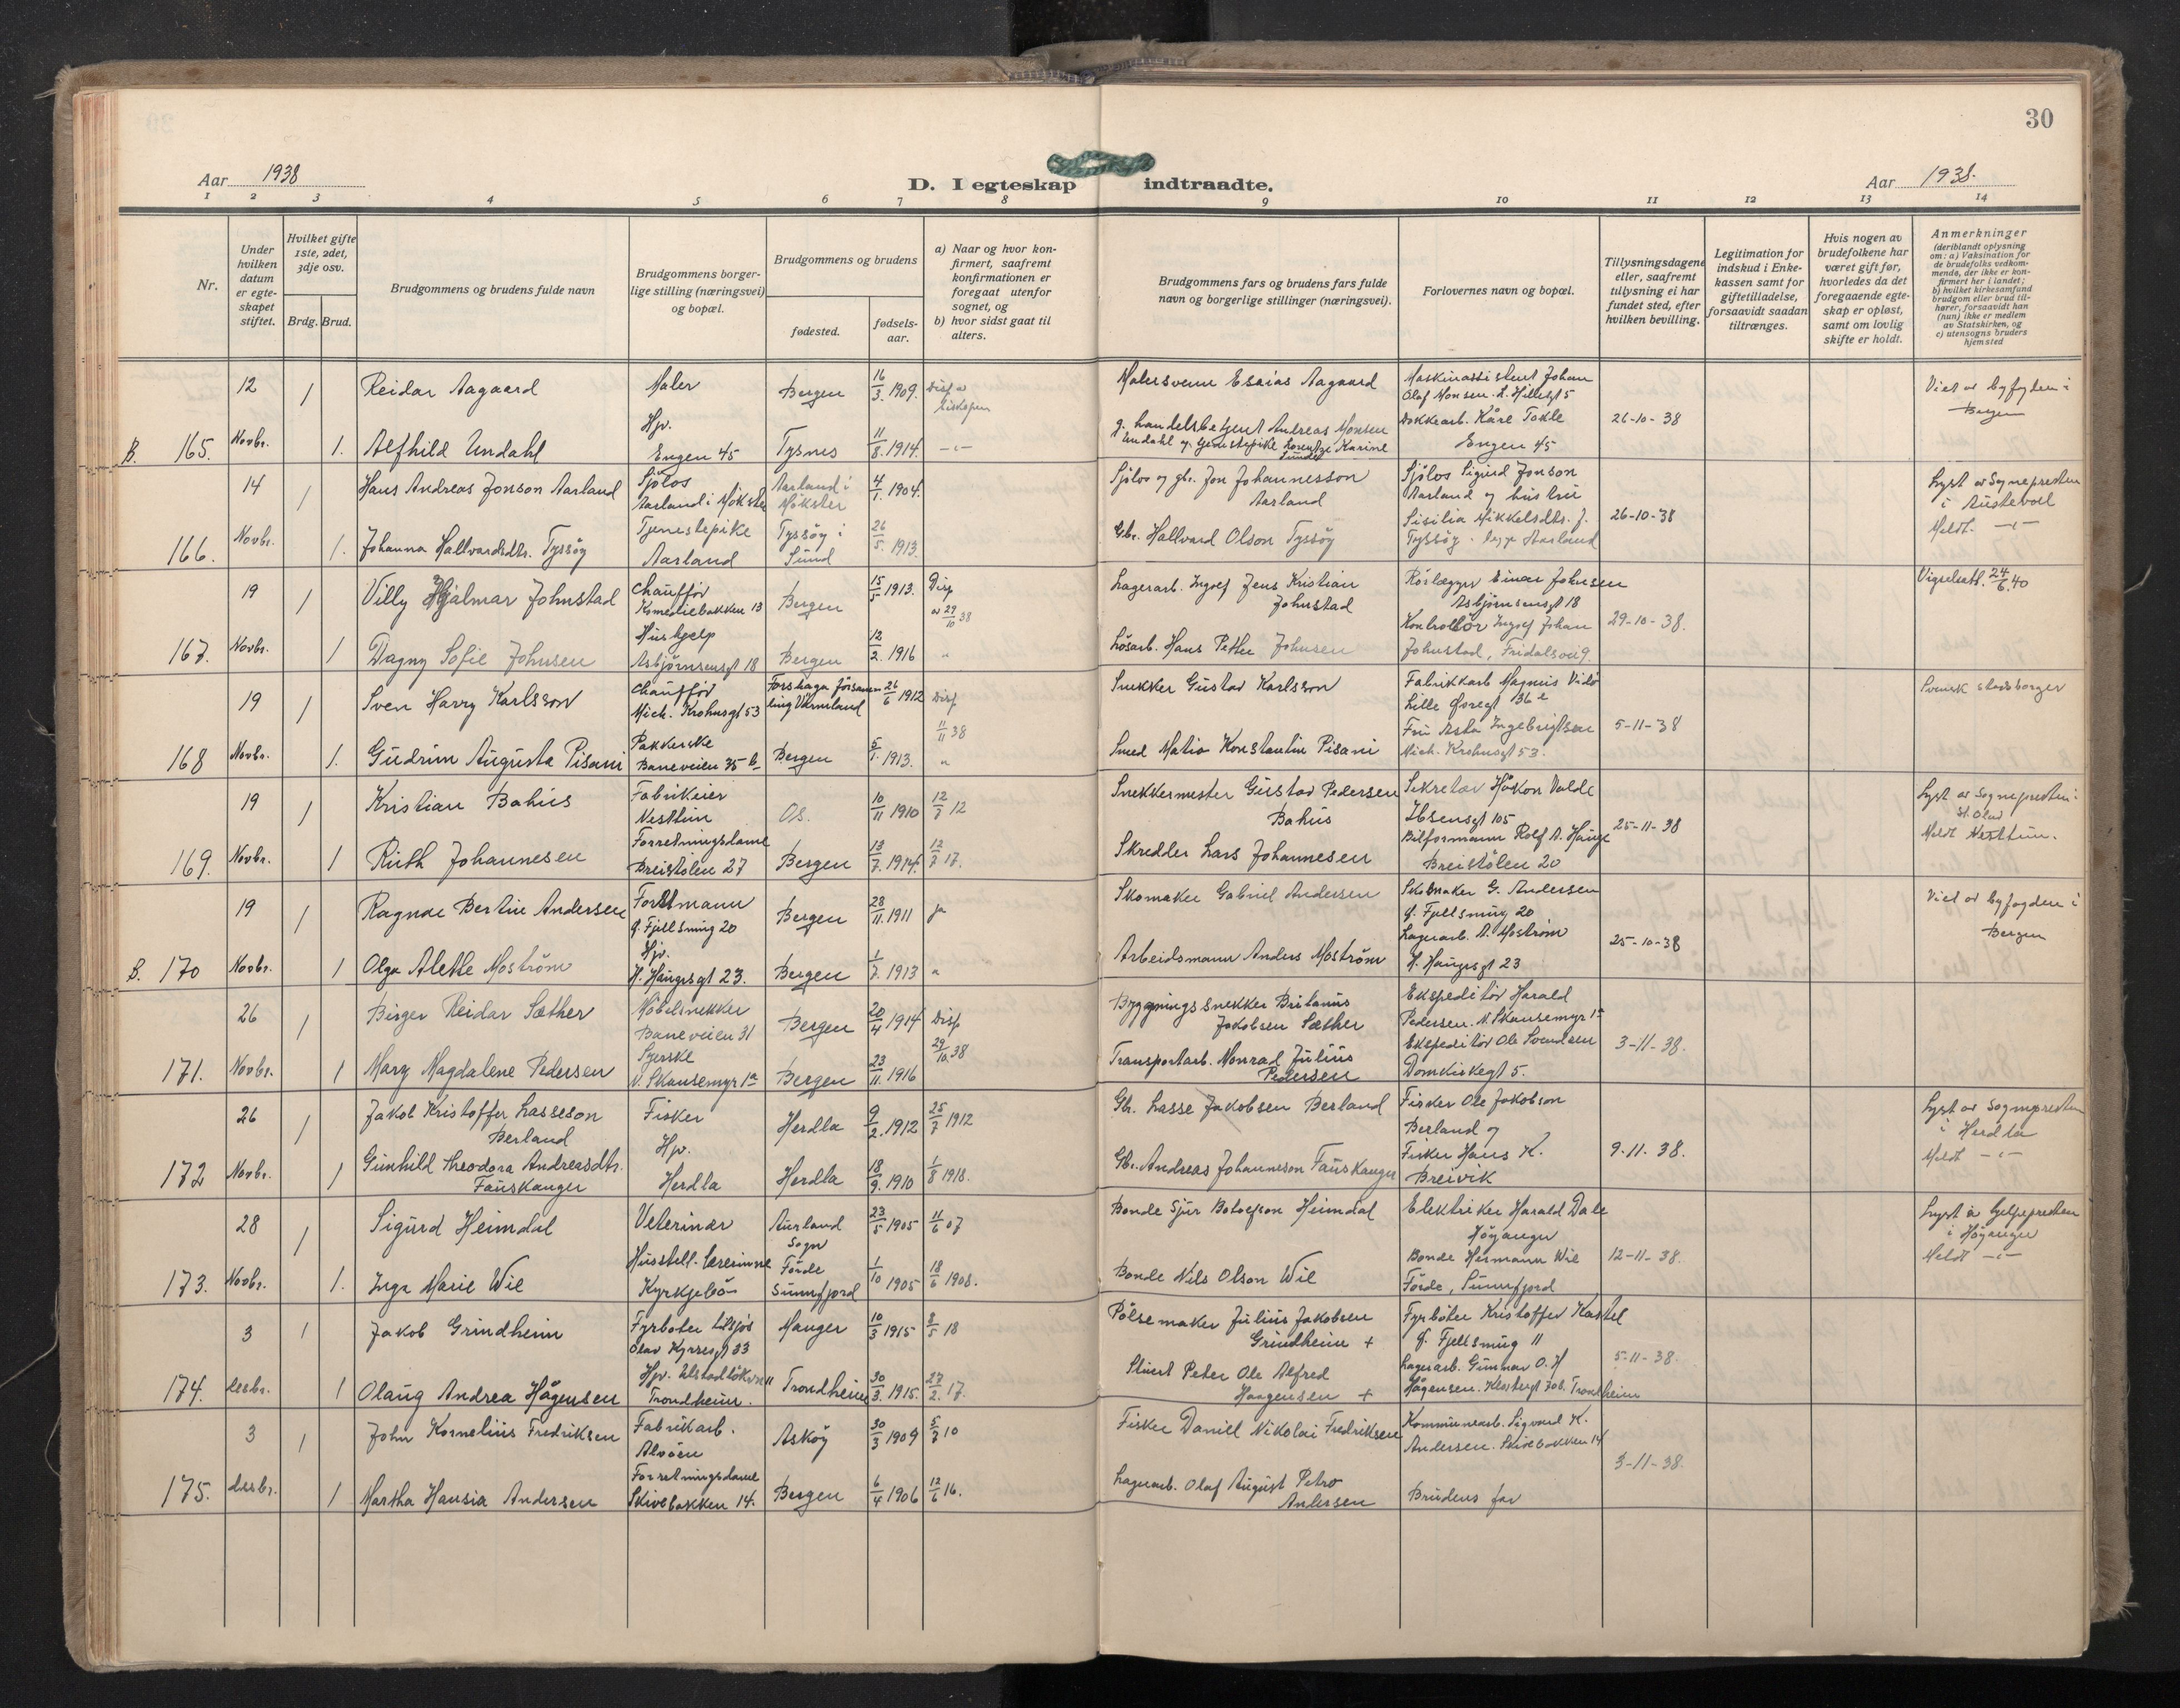 30
Aar 1938
D. I egteskap indtraadte.
Aar 1938.
1 2 3 4 5 6 7 8 9 10 11 12 13 14
Nr.
Under hvilken datum er egteskapet stiftet.
Hvilket gifte 1ste, 2det, 3dje osv.
Brdg. Brud.
Brudgommens og brudens fulde navn
Brudgommens borgerlige stilling (næringsvei) og bopæl.
Brudgommens og brudens
fødested.
fødselsaar.
a) Naar og hvor konfirmert, saafremt konfirmationen er foregaat utenfor sognet, og
b) hvor sidst gaat til alters.
Brudgommens fars og brudens fars fulde navn og borgerlige stillinger (næringsvei).
Forlovernes navn og bopæl.
Tillysningsdagene eller, saafremt tillysning ei har fundet sted, efter hvilken bevilling.
Legitimation for indskud i Enkekassen samt for giftetilladelse, forsaavidt saadan tiltrænges.
Hvis nogen av brudefolkene har været gift før, hvorledes da det foregaaende egteskap er opløst, samt om lovlig skifte er holdt.
Anmerkninger
(deriblandt oplysning om: a) Vaksination for de brudefolks vedkommende, der ikke er konfirmert her i landet;
b) hvilket kirkesamfund brudgom eller brud tilhører, forsaavidt han (hun) ikke er medlem av Statskirken, og
c) utensogns bruders hjemsted
12 1 Reidar Aagaard Maler Bergen 16/3. 1909. Disp av biskopen Malersvenn Esaias Aagaard Maskinassistent Johan Olaf Monsen. L. Hillesgt 5 Viet av byfogden i Bergen
B. 165. Novbr. 1. Alfhild Undahl Hjv. Engen 45 Tysnes 11/8. 1914. -"- g. handelsbetjent Andreas Monsen Undahl og tjenestepike Lorentze Karine Dokkearb. Kåre Takle Engen 45 26-10-38
14 1 Hans Andreas Jonson Aarland Sjølos Aarland i Møkster Aarland i Møkster 4/1. 1904. Sjølos og gbr. Jon Johannesson Aarland Sjølos Sigurd Jonson Aarland og hustru Lyst av Sognepresten i Austevoll
166. Novbr. 1. Johanna Hallvardsdtr. Tyssøy Tjenestepike Aarland Tyssøy i Sund 26/5. 1913. Gbr. Hallvard Olson Tyssøy Sisilia Mikkelsdtr. f. Tyssøy. Aarland 26-10-38 Meldt. -"-
19 1 Villy Hjalmar Johnstad Chauffør Komediebakken 13 Bergen 15/5 1913. Disp av 29/10 38 Lagerarb. Ingolf Jens Kristian Johnstad Rørlægger Einar Johnsen Asbjørnsensgt 18 Vigselsatt. 24/6. 40
167. Novbr. 1 Dagny Sofie Johnsen Hushjelp Asbjørnsensgt 18 Bergen 12/2. 1916 " Løsarb. Hans Petter Johnsen Kontrollør Ingolf Johan Johnstad, Fridalsvei 9. 29-10-38.
19 1 Sven Harry Karlsson Chauffør Mich. Krohnsgt 53 Forshaga församling Värmland 26/6 1912 Disp 1/11 38 Snekker Gustav Karlsson Fabrikkarb Magnus Vidø Lille Øvregt 36 e Svensk statsborger
168 Novbr. 1. Gudrun Augusta Pisani Pakkerske Baneveien 35 b Bergen 5/1. 1913. " Smed Matio Konstantin Pisani Fru Asta Ingebrigtsen Mich. Krohnsgt 53. 5-11-38
19 1 Kristian Bahus Fabrikeier Nesttun Os. 10/11 1910 12/7 12 Snekkermester Gustav Pedersen Bahus Sekretær Håkon Valde Ibsensgt 105 Lyst av Sognepresten i St. Olav
169. Novbr. 1 Ruth Johannesen Forretningsdame Breistølen 27 Bergen 13/7. 1914. 12/7 17. Skredder Lars Johannesen Bilformann Rolf A. Hauge Breistølen 20 25-11-38 Meldt Nesttun.
19 1 Ragnar Bertin Andersen Formann Ø. Fjellsmug 20 Bergen 28/11. 1911 ja Skomaker Gabriel Andersen Skomaker G. Andersen Ø. Fjellsmug 20 Viet av byfogden i Bergen
B. 170 Novbr. 1 Olga Alette Moström Hjv. H. Haugesgt 23. Bergen 1/7. 1913 " Arbeidsmann Anders Moström Lagerarb. A. Moström H. Haugesgt 23 25-10-38
26 1 Birger Reidar Sæther Møbelsnekker Baneveien 31 Bergen 20/4 1914 Disp 29/10. 38 Bygningssnekker Britanus Jakobsen Sæther Ekspeditør Harald Pedersen. N. Skansemyr 1a
171. Novbr. 1 Mary Magdalene Pedersen Syerske N. Skansemyr 1a Bergen 23/11. 1916 Transportarb. Monrad Julius Pedersen Ekspeditør Ole Svendsen Domkirkegt 5. 3-11-38.
26 1 Jakob Kristoffer Lasseson Berland Fisker Herdla 9/2. 1912 25/7 1912 Gbr. Lasse Jakobsen Berland Fisker Ole Jakobson Berland og Lyst av Sognepresten i Herdla
172 Novbr. 1 Gunhild Theodora Andreasdtr. Fauskanger Hjv. Herdla Herdla 18/9. 1910 1/8 1918. Gbr. Andreas Johanneson Fauskanger Fisker Hans K. Breivik 9.11.38. Meldt -"-
28 1 Sigurd Heimdal Veterinær Aurland Sogn 23/5 1905 11/6 07 Bonde Sjur Botolfson Heimdal Elektriker Harald Dale Høyanger Lyst av hjelpepresten i Høyanger
173. Novbr. 1. Inga Marie Wie Husstell-lærerinne Kyrkjebø Førde Sunnfjord 1/10 1905 18/6 1908. Bonde Nils Olson Wie Bonde Hermann Wie Førde, Sunnfjord 12-11-38. Meldt -"-
3 1 Jakob Grindheim Fyrbøter tilsjøs Olav Kyrresgt 33 Manger 10/3 1915 8/5 18 Pølsemaker Julius Jakobsen Grindheim + Fyrbøter Kristoffer Kastel Ø. Fjellsmug 11
174. desbr. 1 Olaug Andrea Hågensen Hjv. Ulstadløkvn 11 Trondheim. Trondheim 30/3. 1915. 27/2. 17. Peter Ole Alfred Haagensen + Lagerarb. Gunnar O. H Hågensen. Trondheim 5-11-38.
3 1 John Kornelius Fredriksen Fabrikarb. Alvøen Askøy 30/3 1909 5/7 10 Fisker Daniel Nikolai Fredriksen Kommunearb. Sigvard K. Andersen. Skivebakken 14
175. desbr. 1 Martha Hansia Andersen Forretningsdame Skivebakken 14. Bergen 6/4 1906 12/6 16. Lagerarb. Olaf August Petro Andersen Brudens far 3-11-38.